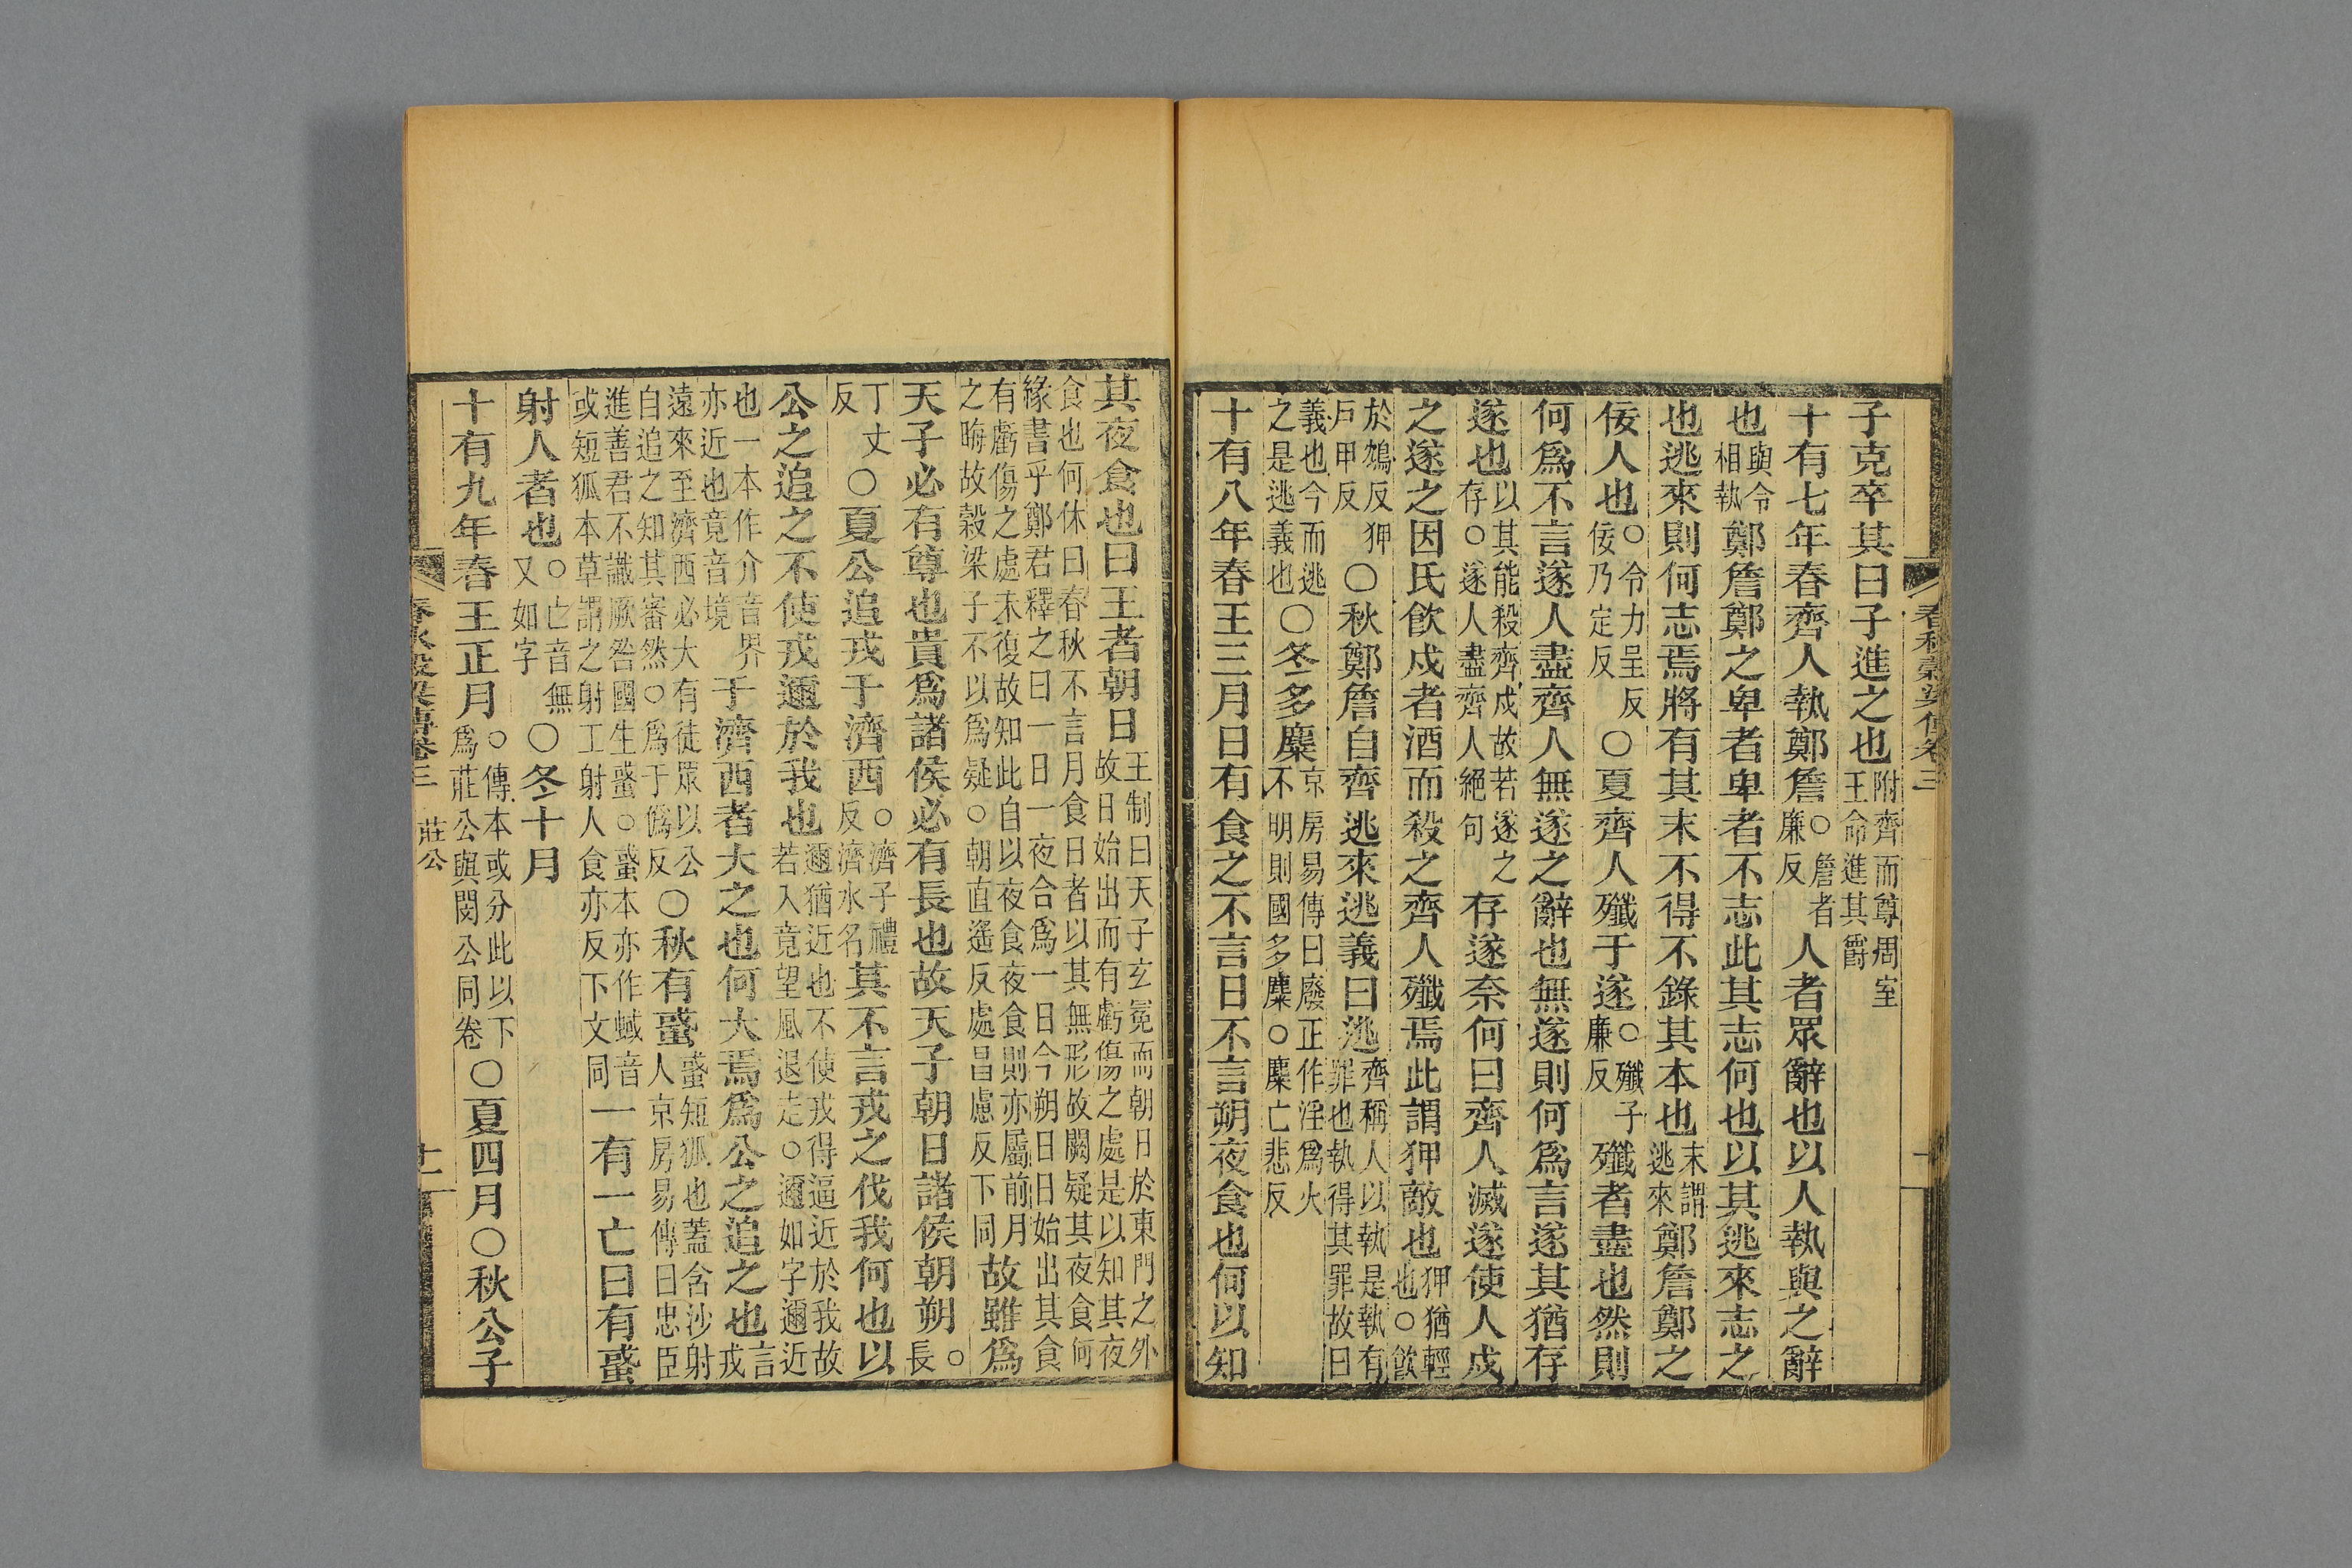 春秋穀梁傳卷三
子克卒其曰子進之也附齊而尊周室王命進其爵
十有七年春齊人執鄭詹○詹者廉反人者眾辭也以人執與之辭
也與令相執鄭詹鄭之卑者卑者不志此其志何也以其逃來志之
也逃來則何志焉將有其末不得不錄其本也末謂逃來鄭詹鄭之
佞人也○令力呈反佞乃定反○夏齊人殲于遂○殲子廉反殲者盡也然則
何爲不言遂人盡齊人無遂之辭也無遂則何爲言遂其猶存
遂也以其能殺齊戍故若遂之存○遂人盡齊人絕句存遂奈何曰齊人滅遂使人戍
之遂之因氏飮戍者酒而殺之齊人殲焉此謂狎敵也狎猶輕也○飮
於鴆反狎戶甲反○秋鄭詹自齊逃來逃義曰逃齊稱人以執是執有罪也執得其罪故曰
義也今而逃之是逃義也○冬多麋京房易傳曰廢正作淫爲火不明則國多麋○麋亡悲反
十有八年春王三月日有食之不言日不言朔夜食也何以知
其夜食也曰王者朝日王制曰天子玄冕而朝日於東門之外故日始出而有虧傷之處是以知其夜
食也何休曰春秋不言月食日者以其無形故闕疑其夜食何緣書乎鄭君釋之曰一日一夜合爲一日今朔日日始出其食
有虧傷之處未復故知此自以夜食夜食則亦屬前月之晦故穀梁子不以爲疑○朝直遙反處昌慮反下同故雖爲
天子必有尊也貴爲諸侯必有長也故天子朝日諸侯朝朔○長
丁丈反○夏公追戎于濟西○濟子禮反濟水名其不言戎之伐我何也以
公之追之不使戎邇於我也邇猶近也不使戎得逼近於我故若入竟望風退走○邇如字邇近
也一本作介音界亦近也竟音境于濟西者大之也何大焉爲公之追之也言戎
遠來至濟西必大有徒眾以公自追之知其審然○爲于僞反○秋有蜮蜮短狐也蓋含沙射人京房易傳曰忠臣
進善君不識厥咎國生蜮○蜮本亦作蜮音或短狐本草謂之射工射人食亦反下文同一有一亡曰有蜮
射人者也○亡音無又如字○冬十月
十有九年春王正月○傳本或分此以下爲莊公與閔公同卷○夏四月○秋公子
春秋穀梁傳卷三 莊公 十一